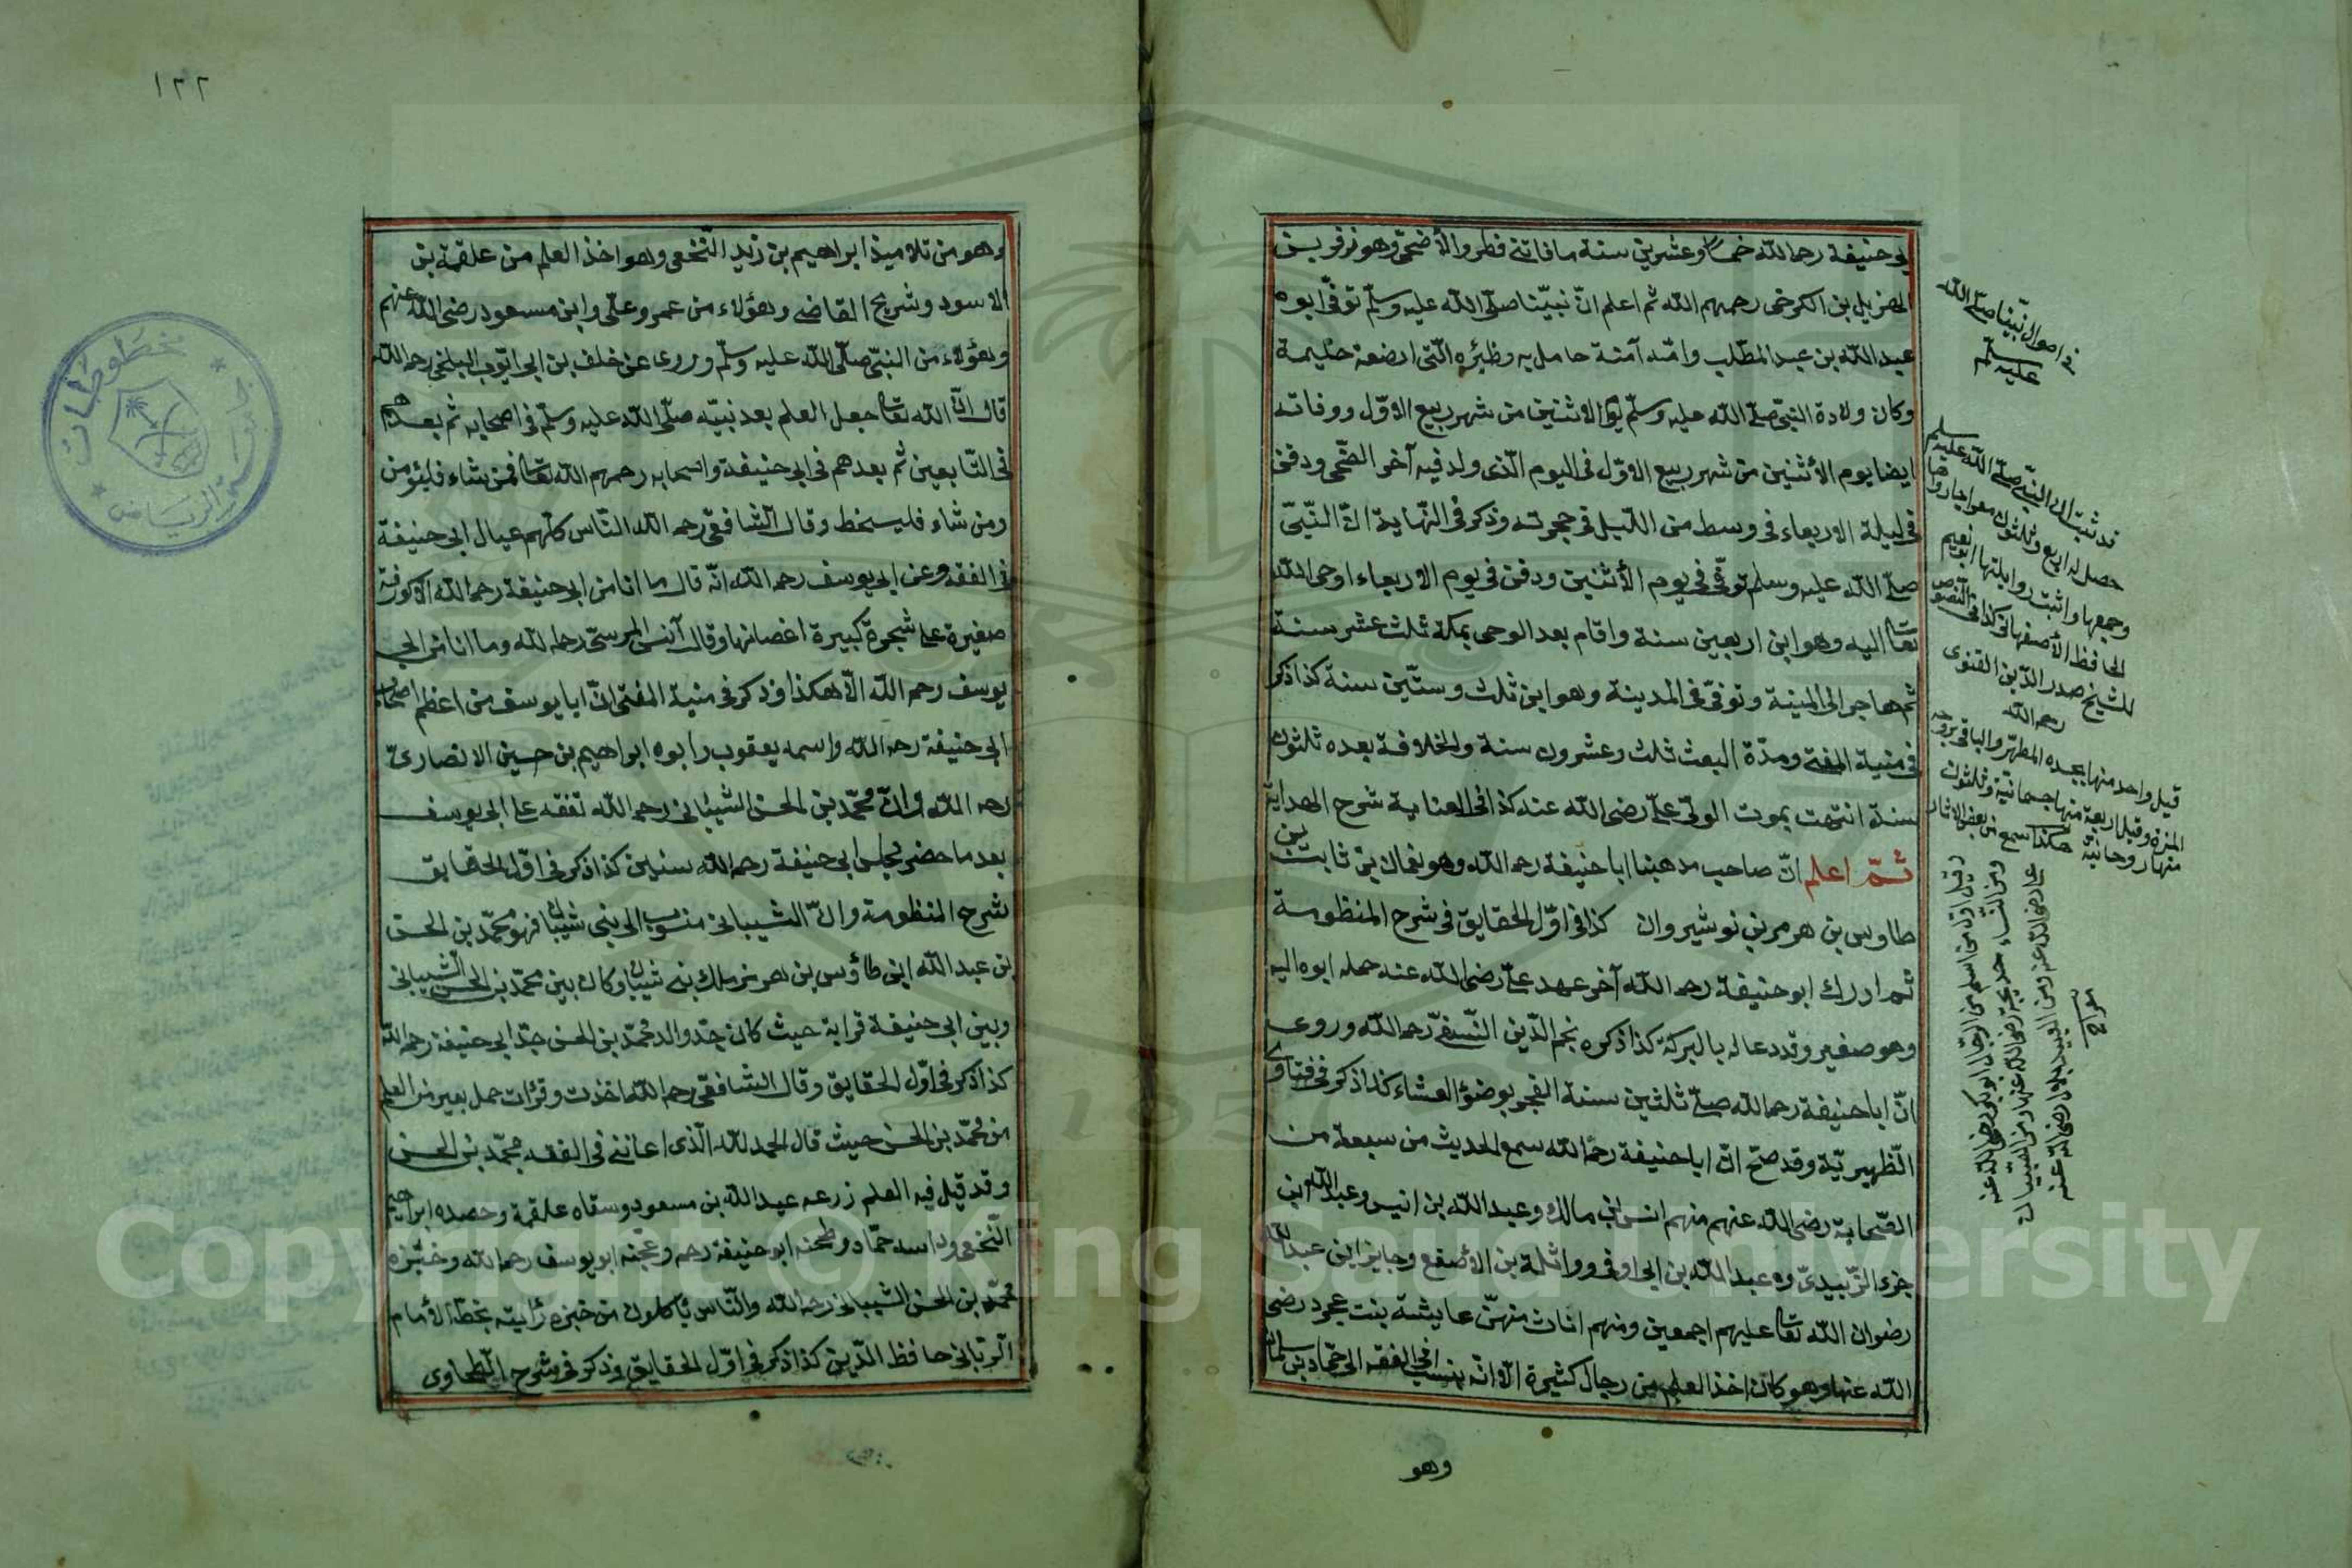 ابى حنيفة رحمه الله خمسا وعشرين سنة ما فاتنى فطر والأضحى وهو زفر بن
الهزيل بن الكرخى رحمهم الله ثم اعلم انّ نبيّنا صلّى الله عليه وسلّم توفّى ابوه
عبد الله بن عبد المطّلب وامّه آمنة حامل به وظئره الّتى ارضعة حليمة
وكان ولادة النبىّ صلّى الله عليه وسلّم يوم الاثنين من شهر ربيع الاوّل ووفاته
ايضا يوم الأثنين من شهر ربيع الاوّل فى اليوم الّذى ولد فيه آخر الضّحى ودفن
فى ليلة الاربعاء فى وسط من اللّيل فى حجرته وذكر فى النّهاية انّ النّبىّ
صلّى الله عليه وسلم توفّى فى يوم الأثنين ودفن فى يوم الاربعاء اوحى الله
تعا اليه وهو ابن اربعين سنة واقام بعد الوحى بمكة ثلث عشر سنة
ثم هاجر الى المدينة وتوفّى فى المدينة وهو ابن ثلث وستّين سنة كذا ذكر
فى منية المفتى ومدّة البعث ثلث وعشرون سنة والخلافة بعده ثلثون
سنة انتهت بموت الولىّ علىّ رضى الله عنه كذا فى العناية شرح الهداية
ثمّ اعلم انّ صاحب مذهبنا ابا حنيفة رحمه الله وهو نعمان بن ثابت بن
طاوس بن هرمز بن نوشيروان كذا فى اوّل الحقايق فى شرح المنظومة
ثم ادرك ابو حنيفة رحمه الله آخر عهد علىّ رضى الله عنه حمله ابوه اليه
وهو صغير وقد دعا له بالبركة كذا ذكره نجم الدّين النّسفىّ رحمه الله وروى
انّ ابا حنيفة رحمه الله صلّى ثلثين سنة الفجر بوضؤ العشاء كذا ذكر فى فتاوى
الظّهيريّة وقد صحّ انّ ابا حنيفة رحمه الله سمع الحديث من سبعة من
الصّحابة رضى الله عنهم منهم انس ابن مالك وعبد الله بن انيس وعبد الله ابن
جزء الزّبيدىّ وعبد الله بن ابى اوفى وواثلة بن الأصقع وجابر ابن عبد الله
رضوان الله تعا عليهم اجمعين ومنهم اناث منهنّ عايشة بنت عجرد رضى
الله عنها وهو كان اخذ العلم من رجال كثيرة الّا انّه ينسب فى الفقه الى حمّاد بن سليمان
وهو
فى احوال نبيّنا صلّى الله
عليه وسلم
قد ثبت انّ النبىّ صلّى الله عليه وسلم
حصل له اربع وثلثون معراجا
وجمعها واثبت رواياتها ابو نعيم
الحافظ الأصفهانى كذا فى النصوص
للشيخ صدر الدّين القنوى
رحمه الله
قيل واحد منها بجسده المطهّر والباقى بروحه
المنزه وقيل اربعة منها جسمانية وثلثون
منها روحانية هكذا سمع من بعض الاثار
وقيل اوّل من اسلم من الرجال ابو بكر رضى الله عنه
ومن النّساء خديجة رضى الله عنها ومن الصّبيان
على رضى الله عنه ومن العبيد بلال رضى الله عنه
معراج
١٢٢
وهو من تلاميذ ابراهيم بن زيد النّخعى وهو اخذ العلم من علقمة بن
الاسود وشريح القاضى وهؤلاء من عمر وعلّى وابن مسعود رضى الله عنهم
وهؤلاء من النبىّ صلّى الله عليه وسلّم وروى عن خلف بن ابى ايّوب البلخى رحمه الله
قال انّ الله تعا جعل العلم بعد نبيّه صلّى الله عليه وسلّم فى اصحابه ثم بعدهم
فى التّابعين ثم بعدهم فى ابى حنيفة واصحابه رحمهم الله تعا فمن شاء فليؤمن
ومن شاء فليسخط وقال الشّافعّى رحمه الله النّاس كلّهم عيال ابى حنيفة
فى الفقه وعن ابى يوسف رحمه الله انّه قال ما انا من ابى حنيفة رحمه الله الّا كورقة
صغيرة على شجرة كبيرة اغصانها وقال المرسىّ رحمه لله وما انا من ابى
يوسف رحمه الله الّا هكذا وذكر فى منية المفتى انّ ابا يوسف من اعظم اصحاب
ابى حنيفة رحمه الله واسمه يعقوب وابوه ابراهيم بن حسين الانصارى
رحمه الله وانّ محمّد بن الحسن الشّيبانى رحمه الله تفقه على ابى يوسف
بعد ما حضر مجلس ابى حنيفة رحمه الله سنتين كذا ذكر فى اوّل الحقايق
شرح المنظومة وانّ الشّيبانى منسوب الى بنى شيبان فهو محمّد بن الحسن
بن عبد الله ابن طاؤس بن هرمز ملك بنى شيبان وكان بين محمّد بن الحسن الشّيبانى
وبين ابى حنيفة قرابة حيث كان جدّ والد محمّد بن الحسن جدّ ابى حنيفة رحمه الله
كذا ذكر فى اوّل الحقايق وقال الشافعّى رحمه الله اخذت وقرأت حمل بعير من العلم
من محمّد بن الحسن حيث قال الحمد لله الّذى اعاننى فى الفقه بمحمّد بن الحسن
وقد قيل فيه العلم زرعه عبد الله بن مسعود وسقاه علقمة وحصده ابراهيم
النّخعى وداسه حمّاد وطحنه ابو حنيفة رحمه وعجنه ابو يوسف رحمه الله وخبّزه
محمّد بن الحسن الشيبانى رحمه الله والنّاس يأكلون من خبزه رأيته بخطّ الأمام
الرّبّانى حافظ الدّين كذا ذكر فى اوّل الحقايق وذكر فى شرح الطّحاوى
مخطوطات
الرياض
Copyright © King Saud University
1957